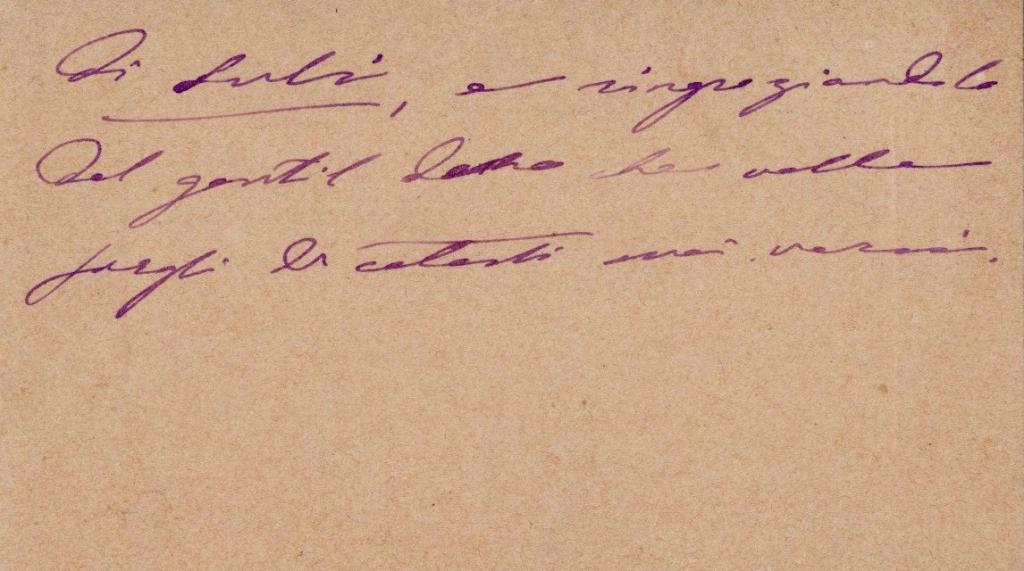 Di Lulù, e ringraziandolo
del gentil dono che volle
fargli di cotesti suoi versi.